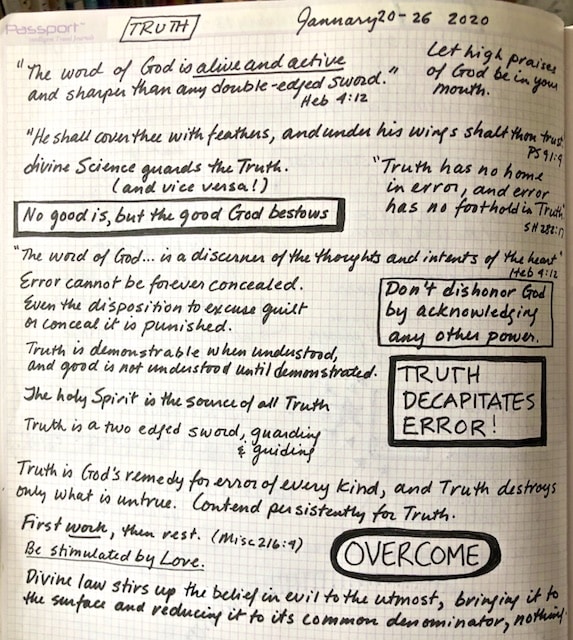 Passport
TRUTH
January 20-26 2020
"The word of God is alive and active
and sharper than any double-edged sword."
Heb 4:12
Let high praises
of God be in your
mouth.
"He shall cover thee with feathers, and under his wings shalt thou trust
PS 91:4
divine Science guards the Truth.
(and vice versa!)
"Truth has no home
in error, and error
has no foothold in Truth"
SH 282:17
No good is, but the good God bestows
"The word of God... is a discerner of the thoughts and intents of the heart"
Heb 4:12
Error cannot be forever concealed.
Even the disposition to excuse guilt
or conceal it is punished.
Don't dishonor God
by acknowledging
any other power.
Truth is demonstrable when understood,
and good is not understood until demonstrated.
TRUTH
DECAPITATES
ERROR!
The holy Spirit is the source of all Truth
Truth is a two edged sword, guarding
& guiding
Truth is God's remedy for error of every kind, and Truth destroys
only what is untrue. Contend persistently for Truth.
First work, then rest. (Misc 216:9)
Be stimulated by Love.
OVERCOME
Divine law stirs up the belief in evil to the utmost, bringing it to
the surface and reducing it to its common denominator, nothing